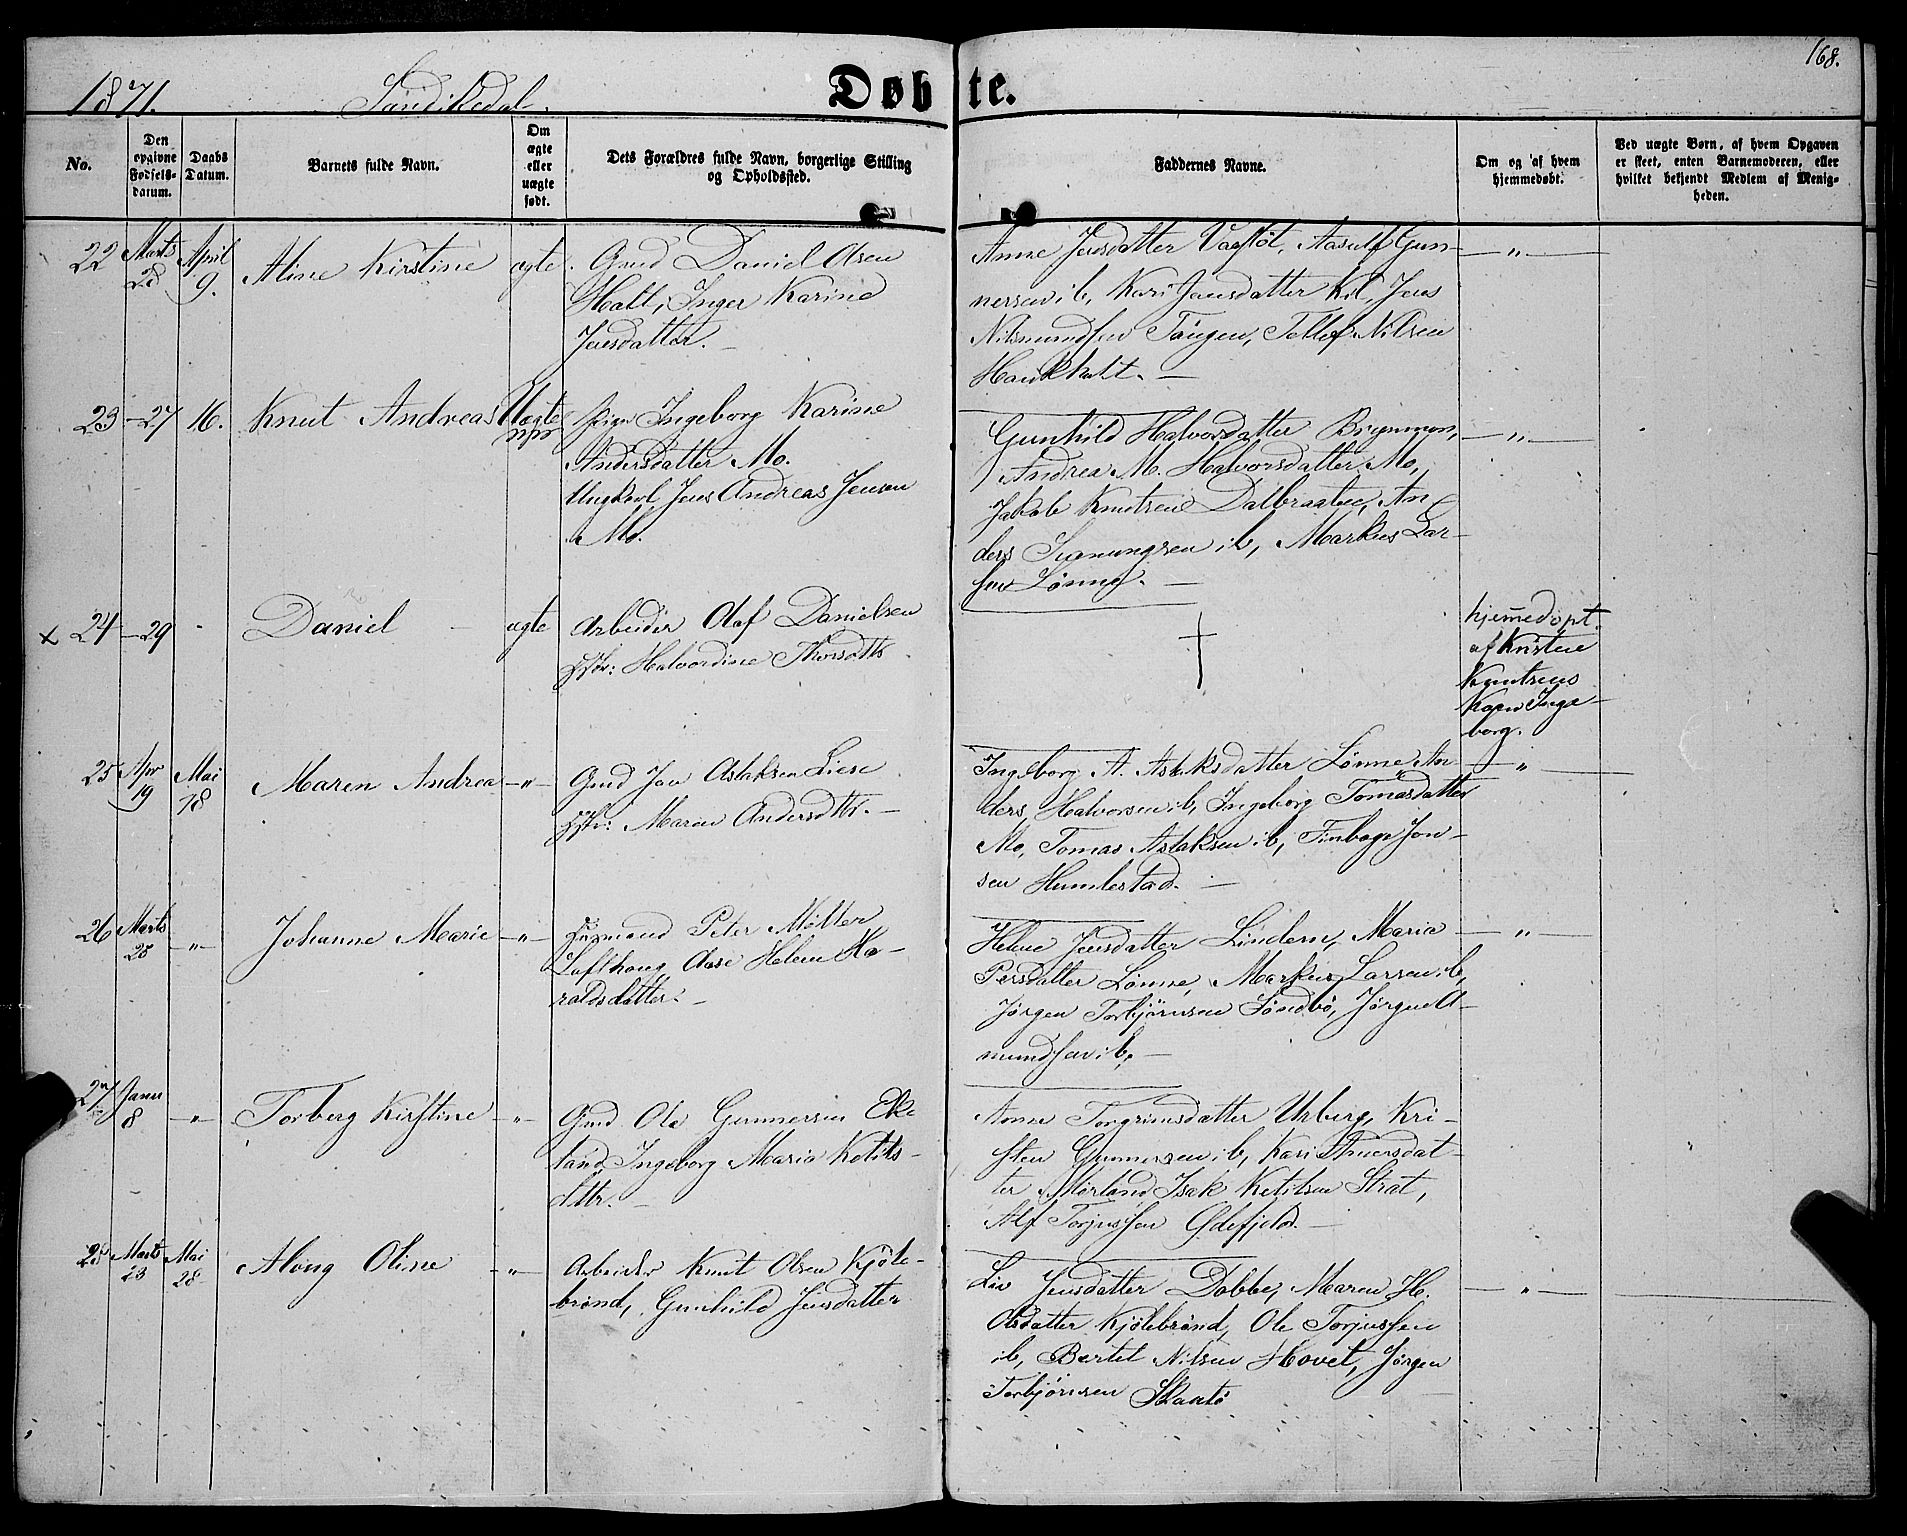 168.
1871. Sandikedal. Døbte.
No.
Den opgivne Fødsels-datum.
Daabs Datum.
Barnets fulde Navn.
Om ægte eller uægte født.
Dets Forældres fulde Navn, borgerlige Stilling
og Opholdssted.
Faddernes Navne.
Om og af hvem
hjemmedøbt.
Ved uægte Børn, af hvem Opgaven
er skeet, enten Barnemoderen, eller
hvilket bekjendt Medlem af Menig-
heden.
22 Marts 28 April 9. Aline Kirstine ægte. Gmd Daniel Olsen
Holt, Inger Karine
Jensdatter. —
Anne Jensdatter Vafføt, Aasulf Gun- — " —
nersen ib, Kari Jensdatter Kil, Jens
Nilsmundsen Tangen, Tellef Nilsen
Haukholt. —
23 - 27 16. Knut Andreas Uægte Pige Ingeborg Karine
Andersdatter Mo.
Ungkarl Jens Andreas Jensen
Mo.
Gunhild Halvorsdatter Brynemon, — " —
Andrea M. Halvorsdatter Mo,
Jakob Knutsen Dalbraaten, An-
ders ib, Markus Lar-
sen Lønne. —
x 24 - 29 " Daniel - ægte Arbeider Olaf Danielsen
Hstr: Halvordine Thorsdtr
†
hjemmedøpt
af Kristen
Knutsens
Kone Inge-
borg.
25 Apr 19 Mai 18 Maren Andrea - " - Gmd Jon Aslaksen Liene
Hstr: Maren Andersdtr. —
Ingeborg A. Aslaksdatter Lønne An- — " —
ders Halvorsen ib, Ingeborg Tomasdatter
Mo, Tomas Aslaksen ib, Finboge Jon-
sen Humlestad. —
26 Marts 25 - " - Johanne Marie - " - Peter Møller
Lofthaug, Aase Helene Ha-
raldsdatter. —
Helene Jensdatter Lindem, Maria — " —
Persdatter Lønne, Markus Larsen ib,
Jørgen Torbjørnsen Søndbø, Jørgen A-
mundsen ib, —
27 Janu 8 - " - Torberg Kirstine - " - Gmd Ole Gunnersen Eke-
land, Ingeborg Maria Ketils-
dttr. —
Anne Torgrimsdatter Urberg, Kri-
sten Gunnersen ib, Kari Thuersdat-
ter Mørland, Isak Ketilsen Strat,
Alf Torjussen Ødefjeld. —
28 Marts 23 Mai 28 Along Oline - " - Arbeider Knut Olsen Kjøle-
brønd, Gunhild Jensdatter
Liv Jensdatter Dobbe, Maren H. — " —
Olsdatter Kjølebrønd, Ole Torjussen
ib, Bertel Nilsen Hovet, Jørgen
Torbjørnsen Skaatø